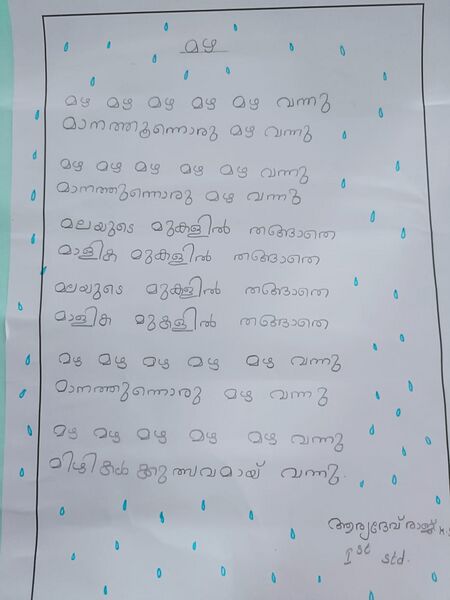 മഴ
മഴ മഴ മഴ മഴ മഴ വന്നു
മാനത്തൂന്നൊരു മഴ വന്നു
മഴ മഴ മഴ മഴ മഴ വന്നു
മാനത്തുന്നൊരു മഴ വന്നു
മലയുടെ മുകളിൽ തങ്ങാതെ
മാളിക മുകളിൽ തങ്ങാതെ
മലയുടെ മുകളിൽ തങ്ങാതെ
മാളിക മുകളിൽ തങ്ങാതെ
മഴ മഴ മഴ മഴ മഴ വന്നു
മാനത്തുന്നൊരു മഴ വന്നു
മഴ മഴ മഴ മഴ മഴ വന്നു
മിഴികൾക്കുത്സവമായ് വന്നു.
ആര്യദേവ് രാജ്
1st std.